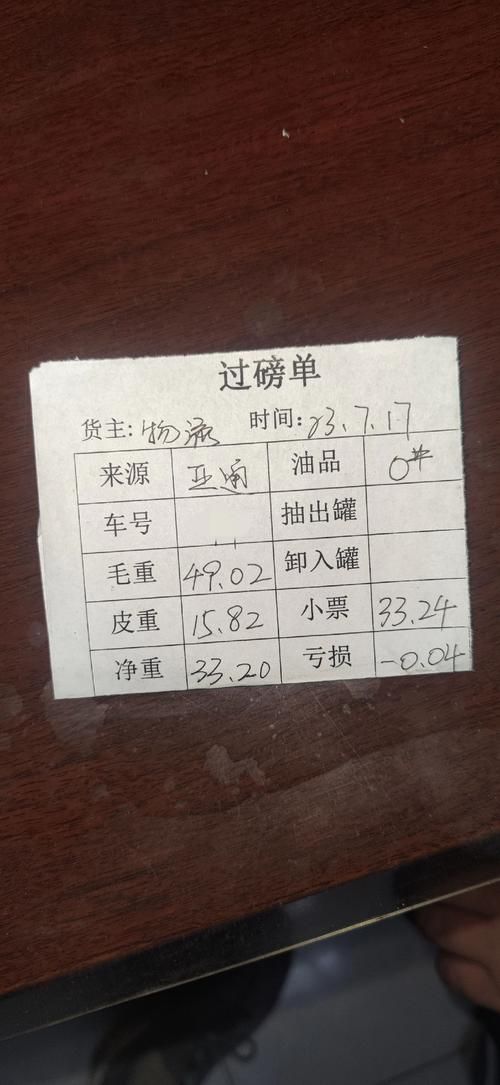 过磅单
货主: 物流 时间: 23.7.17
来源 亚通 油品 0#
车号 抽出罐
毛重 49.02 卸入罐
皮重 15.82 小票 33.24
净重 33.20 亏损 -0.04